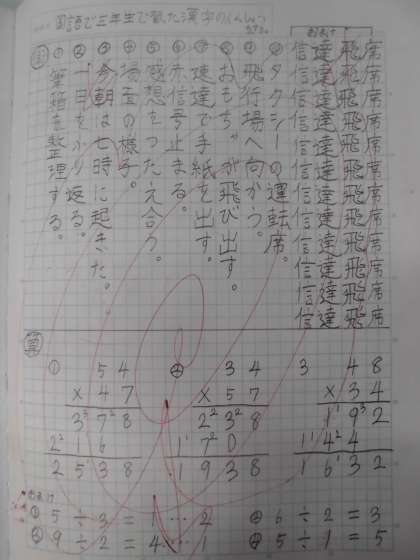 国語で三年生で習った漢字の
おまけ
席席席席席席席席席席席席
飛飛飛飛飛飛飛飛飛飛飛飛
達達達達達達達達達達達達
信信信信信信信信信信信信
⑩タクシーの運転席。
⑨飛行場へ向かう。
⑧おもちゃが飛び出す。
⑦速達で手紙を出す。
⑥赤信号で止まる。
⑤感想をつたえ合う。
④場面の様子。
③今朝は七時に起きた。
②一日をふり返る。
①筆箱を整理する。
国
算
① 54
×47
378
2 6
2538
② 34
×57
238
170
1938
3 48
×34
192
144
1632
おまけ
① 5÷3=1…2
② 9÷2=4…1
④ 6÷2=3
④ 5÷1=5